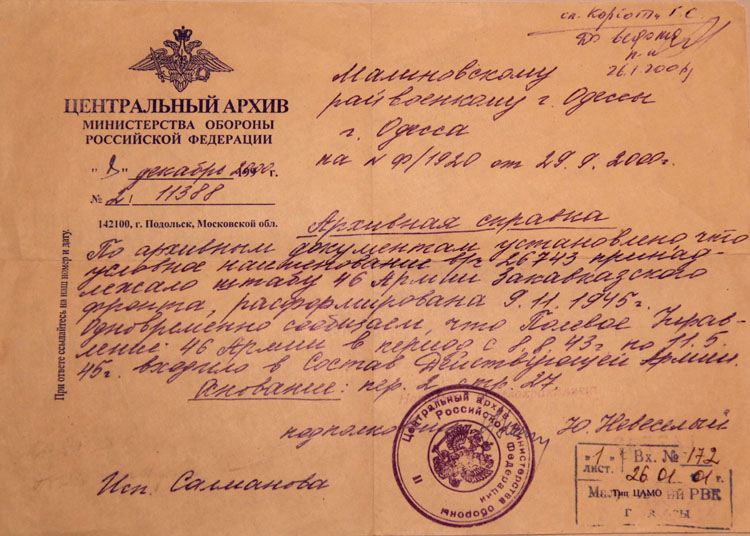 г.С.
26.1.2001
ЦЕНТРАЛЬНЫЙ АРХИВ
МИНИСТЕРСТВА ОБОРОНЫ
РОССИЙСКОЙ ФЕДЕРАЦИИ
декабрь 2000 г.
№ 2/ 11388
142100, г. Подольск, Московской обл.
При ответе ссылайтесь на наш номер и дату.
Малиновскому
райвоенкому г. Одессы
г. Одесса
на № Ф/1920 от 29.9.2000г.
Архивная справка
По архивным документам установлено, что
условное наименование в/ч 26743 принад-
лежало штабу 46 Армии Закавказского
фронта, расформирована 9.11.1945г.
Одновременно сообщаем, что Полевое Управ-
ление 46 Армии в период с 8.8.43г по 11.5.
45г. входило в состав Действующей Армии.
Основание: пер. 2 стр. 27
Ю. Невеселый
Центральный архив Министерства обороны
Российской Федерации
II
Исп. Салманова
"1" лист. Вх. № 172
26 01 01 г.
Тип ЦАМО РВК